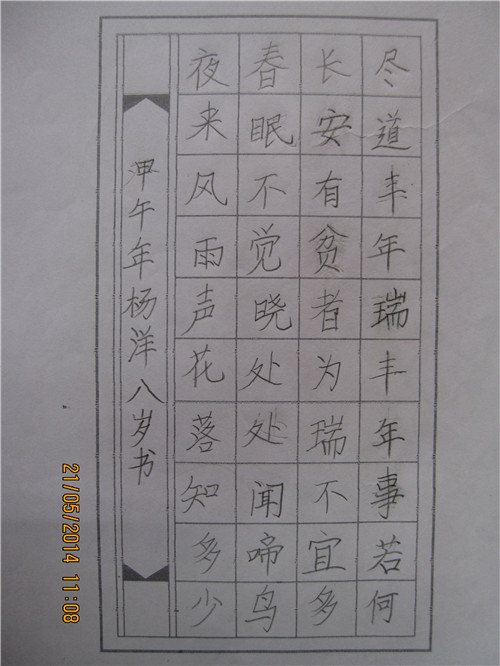 尽道丰年瑞丰年事若何
长安有贫者为瑞不宜多
春眠不觉晓处处闻啼鸟
夜来风雨声花落知多少
甲午年杨洋八岁书
21/05/2014 11:08